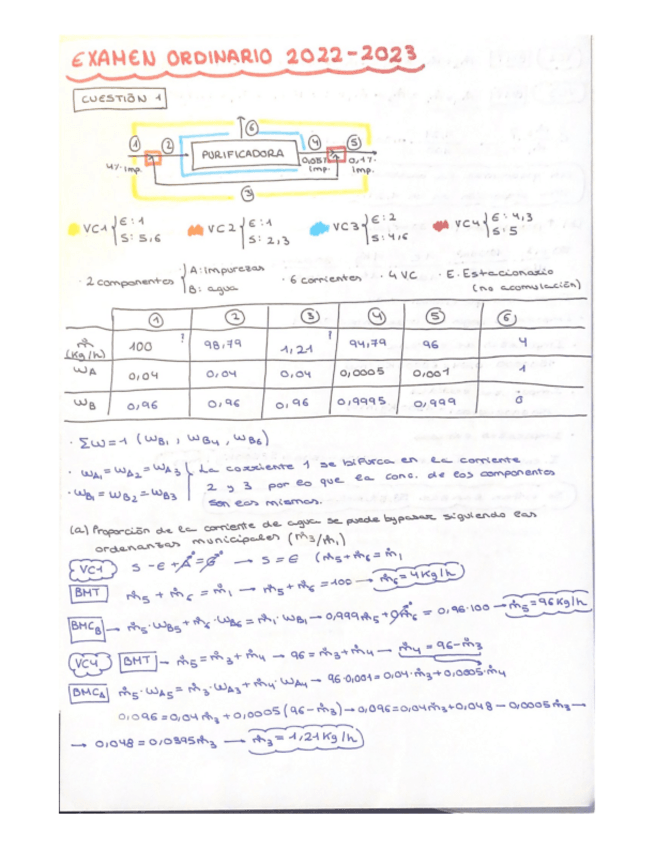 EXAMEN ORDINARIO 2022-2023
CUESTIÓN 1
① ② PURIFICADORA ④ ⑤ ⑥ ③
4% imp.
0,05% imp.
0,1% imp.
VC1 { E: 1 S: 5,6
VC2 { E: 1 S: 2,3
VC3 { E: 2 S: 4,6
VC4 { E: 4,3 S: 5
· 2 componentes { A: impurezas B: agua · 6 corrientes · 4 VC · E. Estacionario (no acumulación)
① ② ③ ④ ⑤ ⑥
ṁ (Kg/h) 100 ! 98,79 1,21 ! 94,79 96 4
ωA 0,04 0,04 0,04 0,0005 0,001 1
ωB 0,96 0,96 0,96 0,9995 0,999 0
· Σω=1 (ωB1, ωB4, ωB6)
· ωA1 = ωA2 = ωA3 | La corriente 1 se bifurca en la corriente
· ωB1 = ωB2 = ωB3 | 2 y 3 por lo que la conc. de los componentes
son las mismas.
(a) Proporción de la corriente de agua se puede bypasar siguiendo las
ordenanzas municipales (ṁ3/ṁ1)
VC1 S - E + A = G → S = E (ṁ5 + ṁ6 = ṁ1
BMT ṁ5 + ṁ6 = ṁ1 → ṁ5 + ṁ6 = 100 → ṁ6 = 4 Kg/h
BMCB → ṁ5 · ωB5 + ṁ6 · ωB6 = ṁ1 · ωB1 → 0,999 ṁ5 + 0ṁ6 = 0,96 · 100 → ṁ5 = 96 Kg/h
VC4 BMT → ṁ5 = ṁ3 + ṁ4 → 96 = ṁ3 + ṁ4 → ṁ4 = 96 - ṁ3
BMCA ṁ5 · ωA5 = ṁ3 · ωA3 + ṁ4 · ωA4 → 96 · 0,001 = 0,04 · ṁ3 + 0,0005 · ṁ4
0,096 = 0,04 ṁ3 + 0,0005 (96 - ṁ3) → 0,096 = 0,04 ṁ3 + 0,048 - 0,0005 ṁ3 →
→ 0,048 = 0,0395 ṁ3 → ṁ3 = 1,21 Kg/h